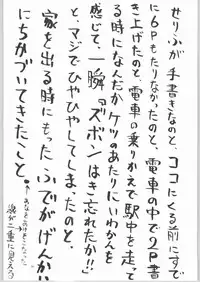 せりふが手書きなのと、ココにくる前にすで
に6Pもたりなかったのと、電車の中で2P書
き上げたのと、電車の乗りかえで駅中を走って
る時になんだかケツのあたりにいわかんを
感じて、一瞬『ズボンはき忘れたか!!』
と、マジでひやひやしてしまったのと、
家を出る時にもったふでがげんかい
にちかづいてきたこと。